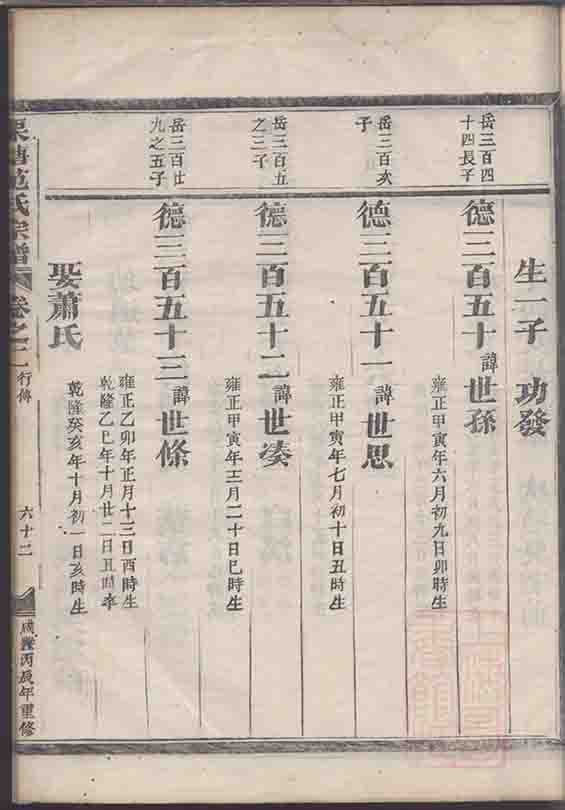 生一子 功發
岳三百四
十四長子
德三百五十 諱世孫
雍正甲寅年六月初九日卯時生
岳三百
子
德三百五十一 諱世思
雍正甲寅年七月初十日丑時生
岳三百五
之三子
德三百五十二 諱世湊
雍正甲寅年三月二十日巳時生
岳三百廿
九之五子
德三百五十三 諱世條
雍正乙卯年正月十三日酉時生
乾隆乙巳年十月廿二日丑時卒
娶蕭氏
乾隆癸亥年十月初一日亥時生
范氏宗譜 卷之 行傳 六十二 咸豐丙辰年重修